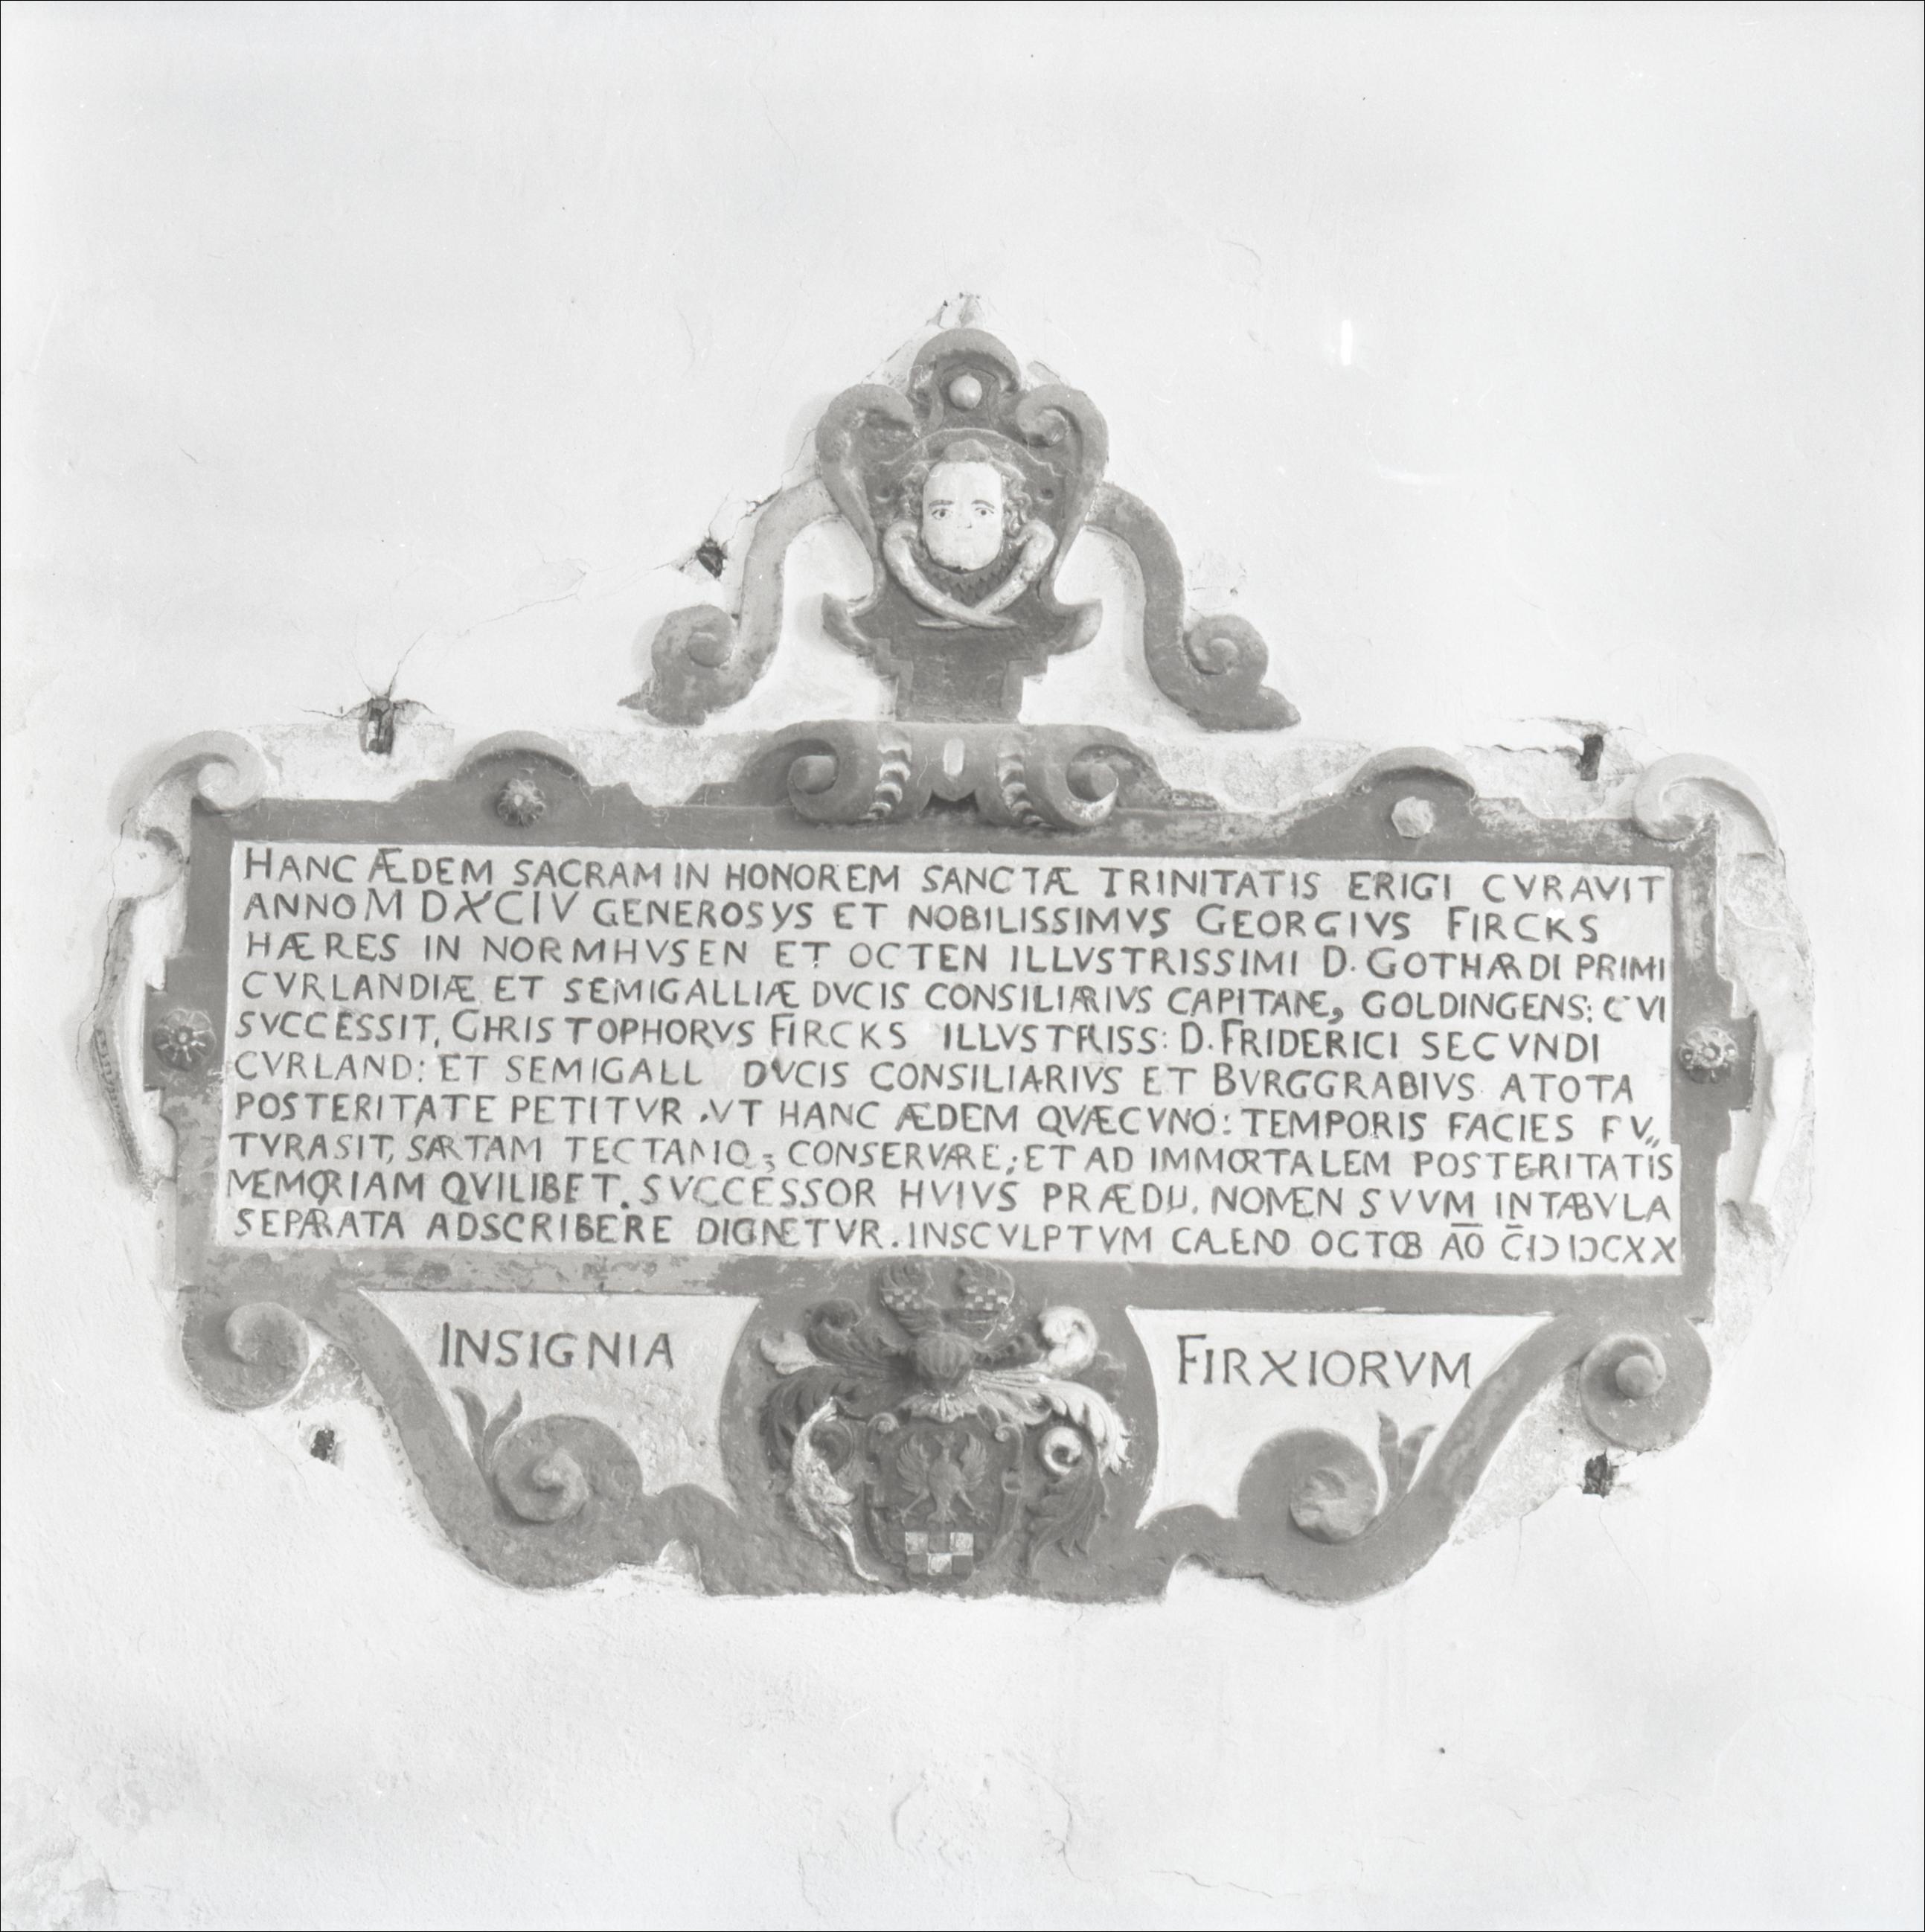 HANC ÆDEM SACRAM IN HONOREM SANCTÆ TRINITATIS ERIGI CVRAVIT
ANNO M DXCIV GENEROSYS ET NOBILISSIMVS GEORGIVS FIRCKS
HÆRES IN NORMHVSEN ET OCTEN ILLVSTRISSIMI D. GOTHARDI PRIMI
CVRLANDIÆ ET SEMIGALLIÆ DVCIS CONSILIARIVS CAPITANE, GOLDINGENS: CVI
SVCCESSIT, CHRISTOPHORVS FIRCKS ILLVSTRISS: D. FRIDERICI SECVNDI
CVRLAND: ET SEMIGALL DVCIS CONSILIARIVS ET BVRGGRABIVS ATOTA
POSTERITATE PETITVR, VT HANC ÆDEM QVÆCVNQ: TEMPORIS FACIES FV„
TVRASIT, SARTAM TECTAMQ; CONSERVARE; ET AD IMMORTALEM POSTERITATIS
MEMORIAM QVILIBET. SVCCESSOR HVIVS PRÆDII. NOMEN SVVM IN TABVLA
SEPARATA ADSCRIBERE DIGNETVR. INSCVLPTVM CALEND OCTOB AO CIↃ IↃCXX
INSIGNIA FIRXIORVM